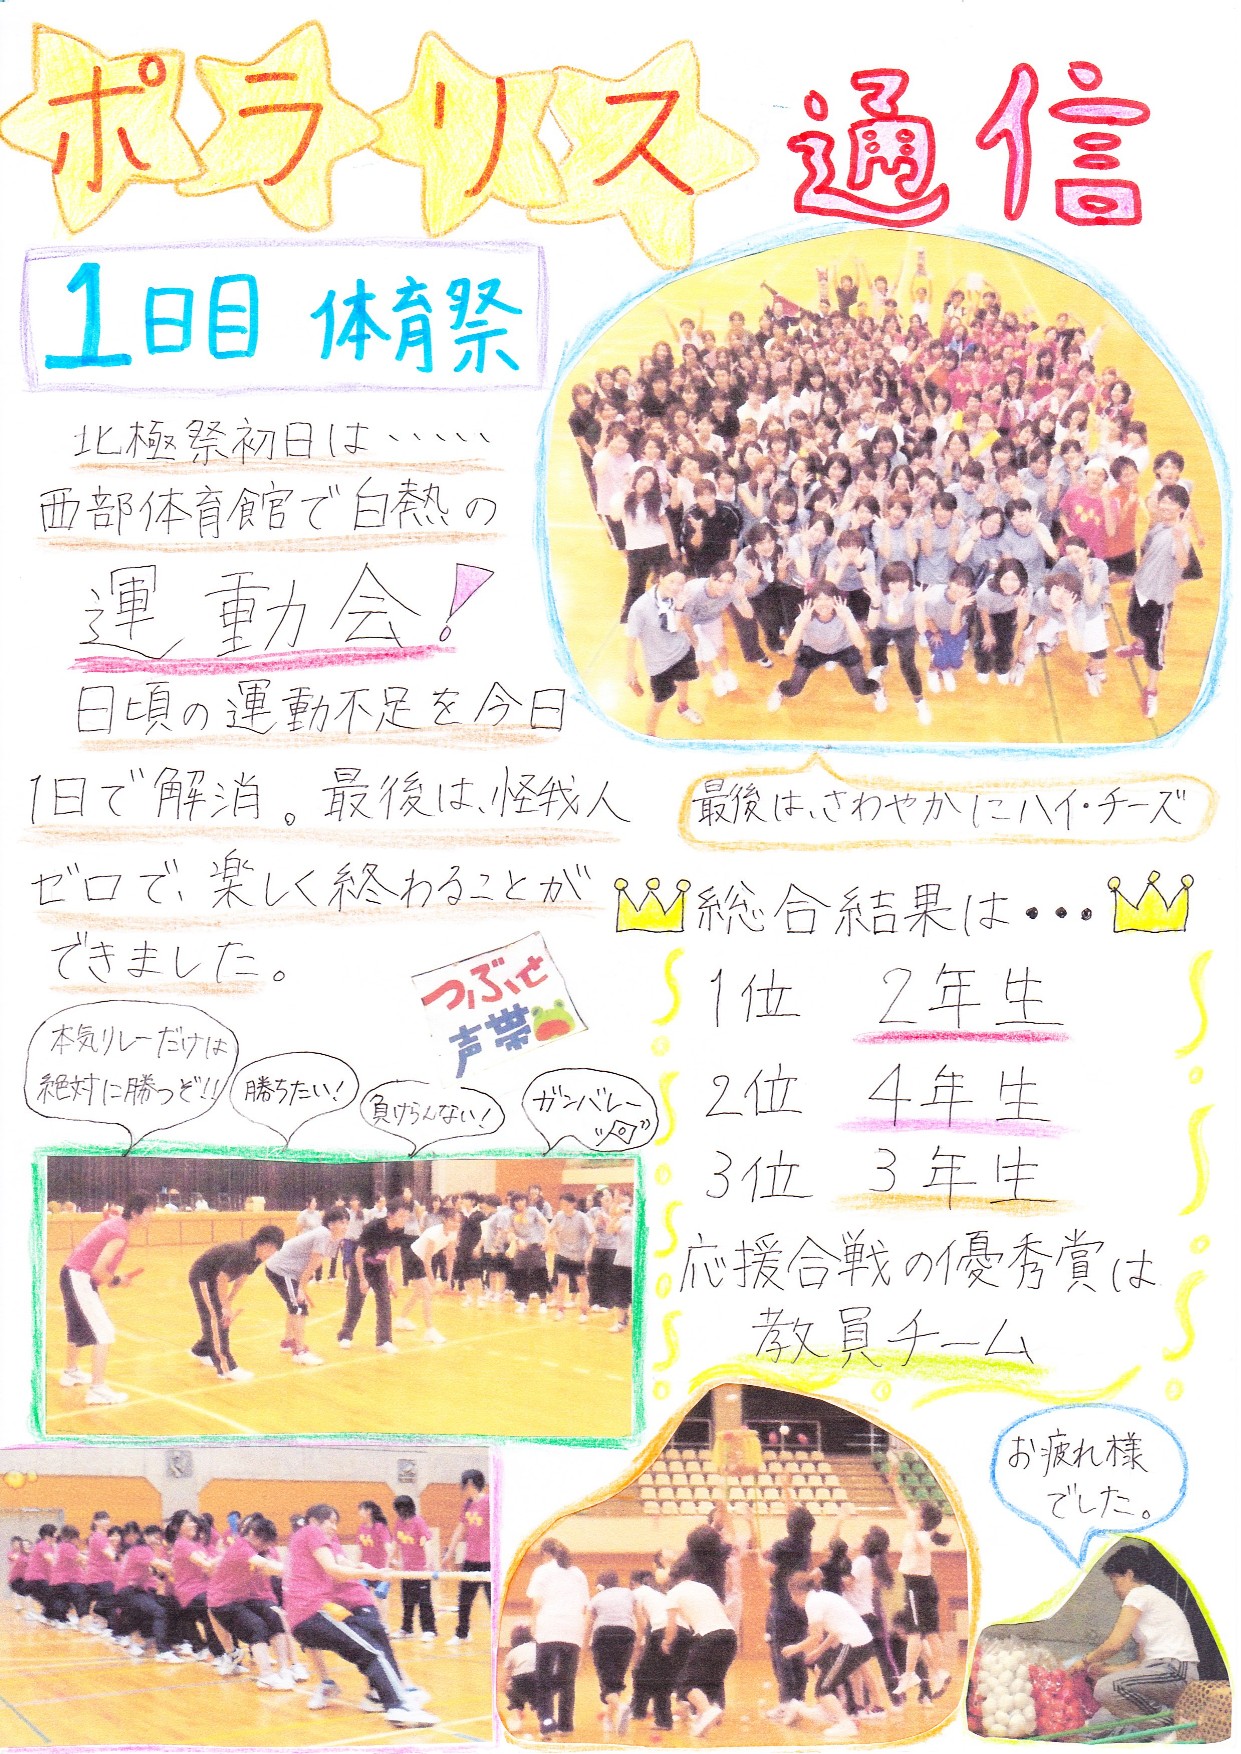 ポラリス通信
1日目 体育祭
北極祭初日は・・・・・
西部体育館で白熱の
運動会!
日頃の運動不足を今日
1日で解消。最後は、怪我人
ゼロで、楽しく終わることが
できました。
最後は、さわやかにハイ・チーズ
総合結果は・・・
1位 2年生
2位 4年生
3位 3年生
応援合戦の優秀賞は
教員チーム
つぶせ
声帯
本気リレーだけは
絶対に勝つぞ!!
勝ちたい!
負けらんない!
ガンバレー
お疲れ様
でした。